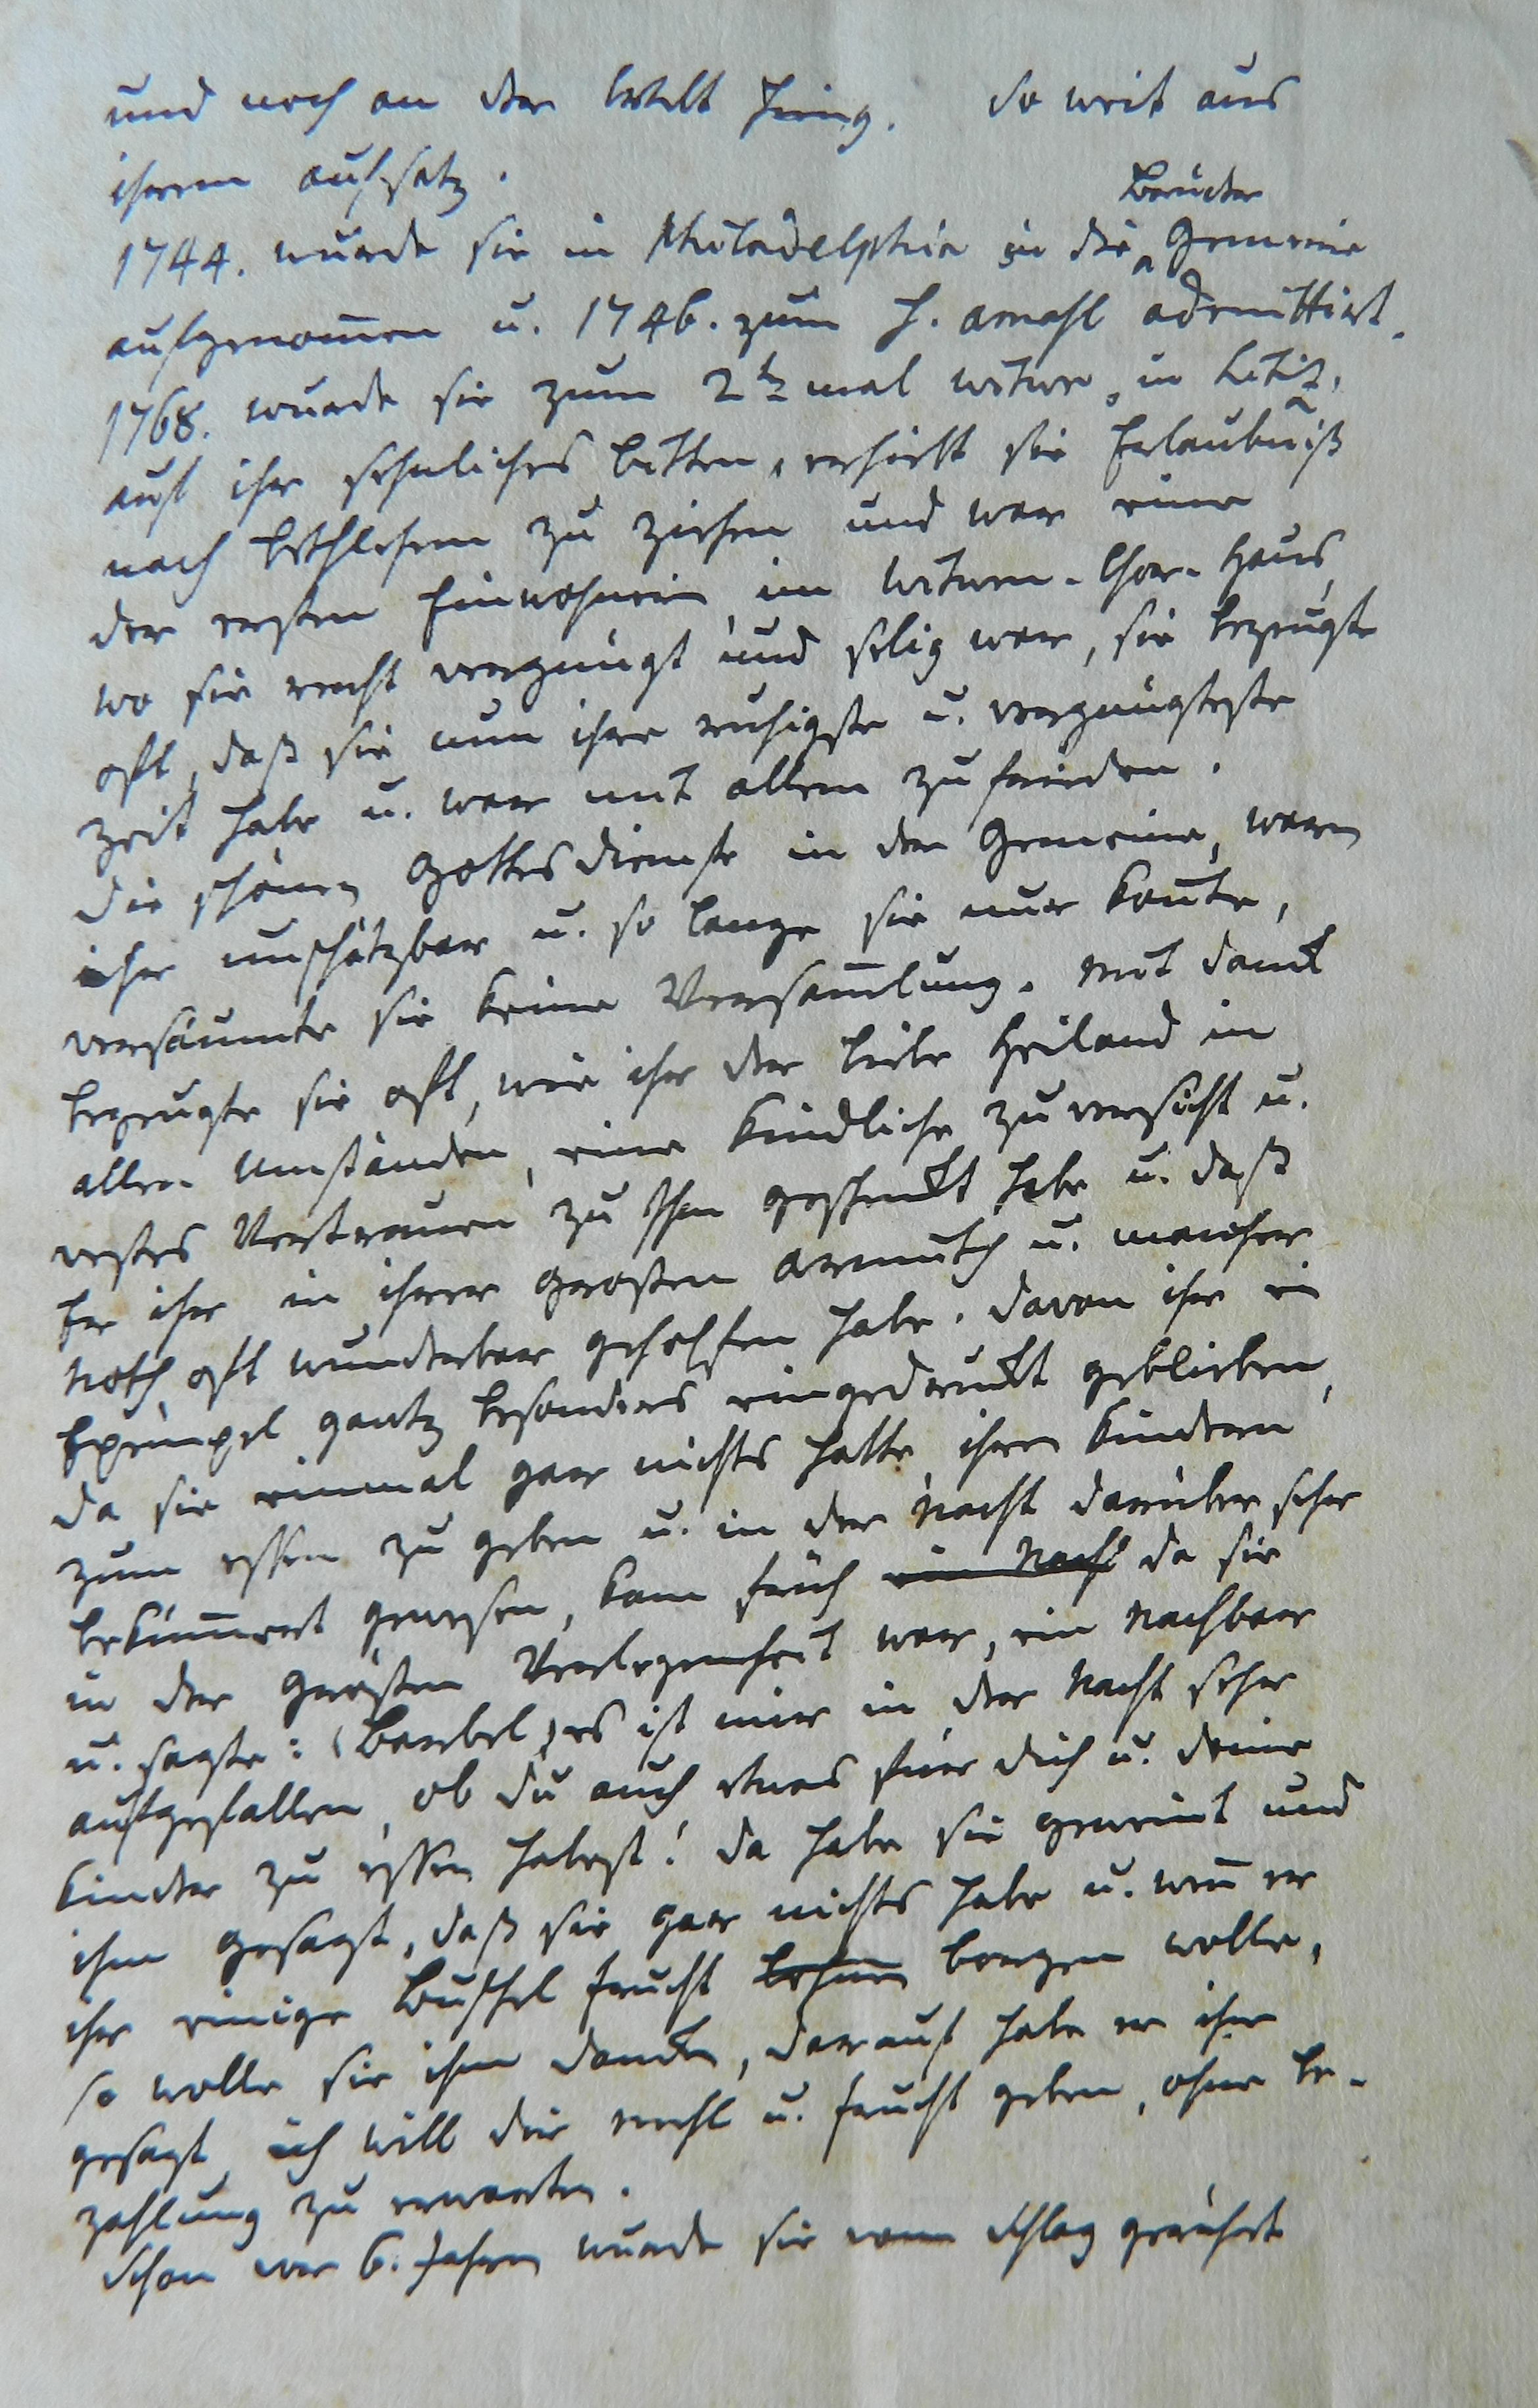 und noch an der Welt hing. So weit aus
ihrem aufsatz.
Brüder
1744. wurde sie in Philadelphia in die Gemeine
aufgenom̅en u. 1746. zum H. Amahl admittirt.
1768. wurde sie zum 2ten mal witwe, in Litiz,
auf ihr sehnliches bitten, erhielt sie Erlaubniß
nach Bethlehem zu ziehen und war eine
der ersten Einwohnerin im Witwen-Chor-Haus,
wo sie recht vergnügt und selig war, sie bezeugte
oft, daß sie nun ihre ruhigste u. vergnügteste
Zeit habe u. war mit allem zufrieden.
Die schönen Gottesdienste in der Gemeine, waren
ihr unschätzbar u. so lange sie nur kon̅te,
versäumte sie keine Versam̅lung. Mit danck
bezeugte sie oft, wie ihr der liebe Heiland in
allen Umständen, eine kindliche zuversicht u.
vestes Vertrauen zu Ihm geschenckt habe u. daß
Er ihr in ihrer grosten armuth u. mancher
Noth, oft wunderbar geholfen habe. Davon ihr ein
Exempel gantz besonders eingedruckt geblieben,
da sie einmal gar nichts hatte, ihren Kindern
zum essen zu geben u. in der Nacht darüber sehr
beküm̅ert gewesen, kam früh ein Nach da sie
in der grösten Verlegenheit war, ein Nachbar
u. sagte: (Barbel) es ist mir in der Nacht sehr
aufgefallen, ob du auch etwas für dich u. deine
Kinder zu essen habest! Da habe sie geweint und
ihm gesagt, daß sie gar nichts habe u. wen̅ er
ihr einige Buschel frucht lehnen borgen wolle,
so wolle sie ihm dancken, darauf habe er ihr
gesagt, ich will dir mehl u. frucht geben, ohne be-
zahlung zu erwarten.
Schon vor 6. Jahren wurde sie vom Schlag gerührt